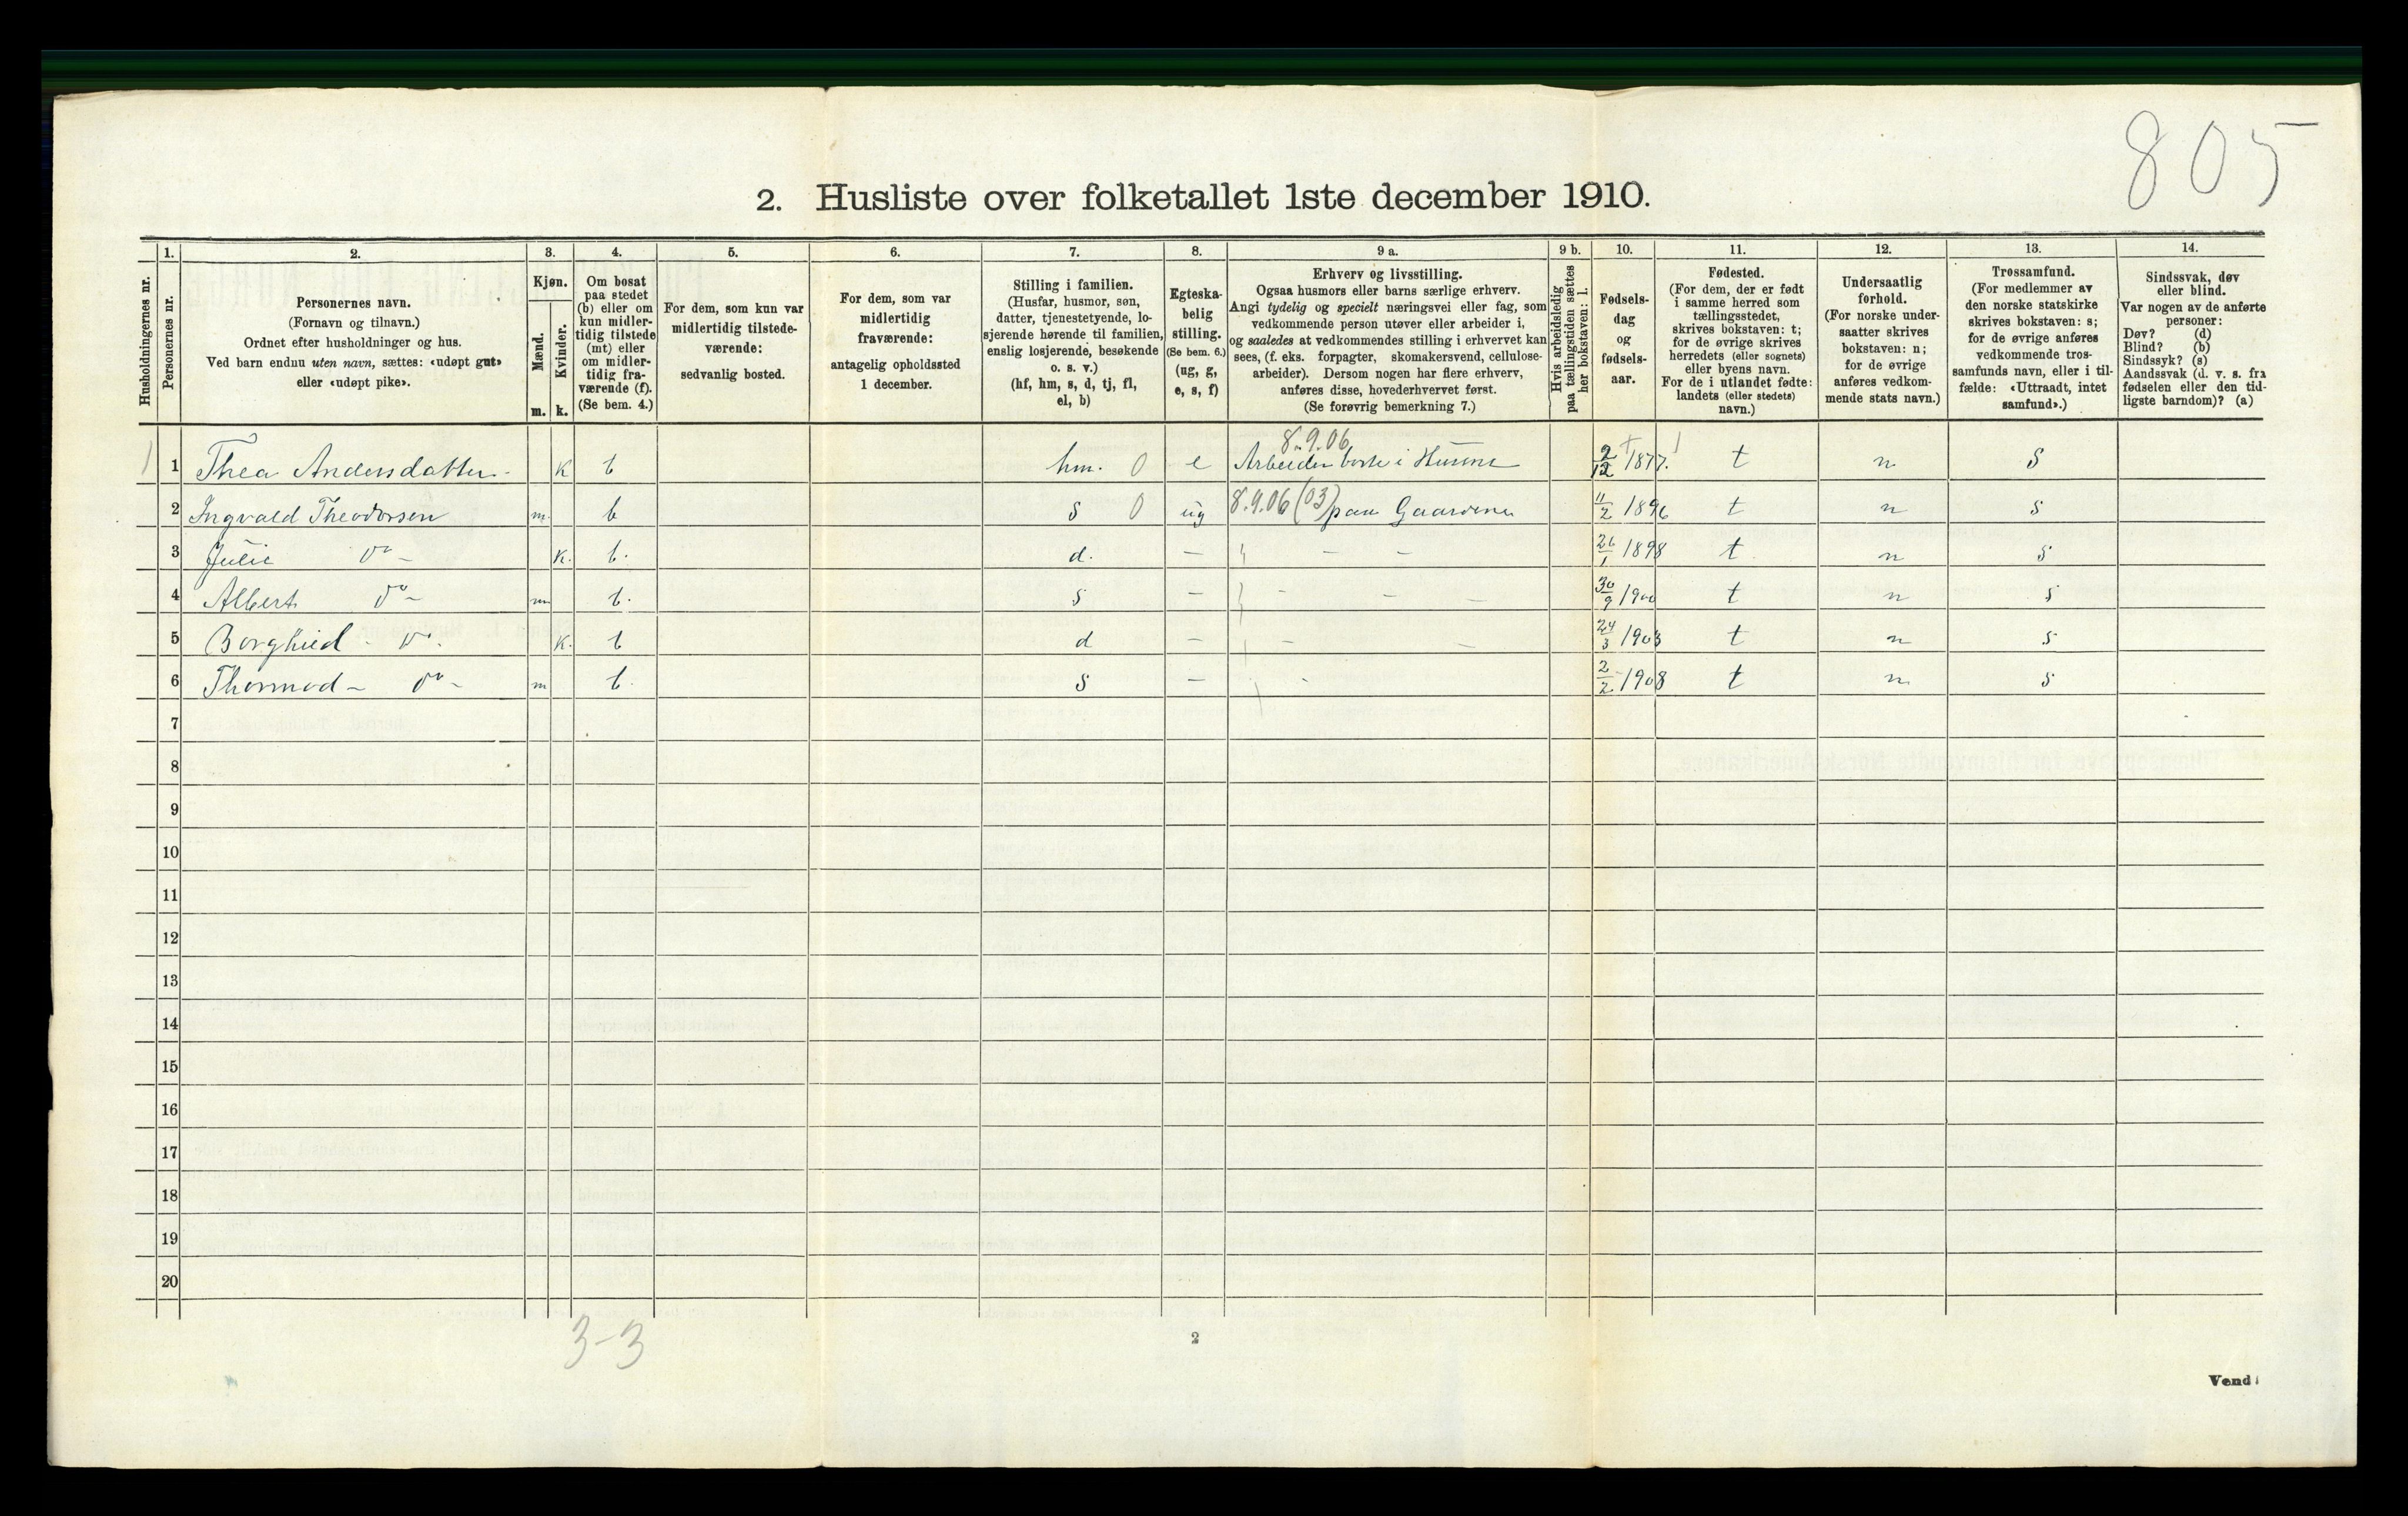 805
2. Husliste over folketallet 1ste december 1910.
Husholdningernes nr.
1.
Personernes nr.
2.
Personernes navn.
(Fornavn og tilnavn.)
Ordnet efter husholdninger og hus.
Ved barn endnu uten navn, sættes: «udøpt gut»
eller «udøpt pike».
3.
Kjøn.
Mænd.
Kvinder.
m. k.
4.
Om bosat
paa stedet
(b) eller om
kun midler-
tidig tilstede
(mt) eller
om midler-
tidig fra-
værende (f).
(Se bem. 4.)
5.
For dem, som kun var
midlertidig tilstede-
værende:
sedvanlig bosted.
6.
For dem, som var
midlertidig
fraværende:
antagelig opholdssted
1 december.
7.
Stilling i familien.
(Husfar, husmor, søn,
datter, tjenestetyende, lo-
sjerende hørende til familien,
enslig losjerende, besøkende
o. s. v.)
(hf, hm, s, d, tj, fl,
el, b)
8.
Egteska-
belig
stilling.
(Se bem. 6.)
(ug, g,
e, s, f)
9 a.
Erhverv og livsstilling.
Ogsaa husmors eller barns særlige erhverv.
Angi tydelig og specielt næringsvei eller fag, som
vedkommende person utøver eller arbeider i,
og saaledes at vedkommendes stilling i erhvervet kan
sees, (f. eks. forpagter, skomakersvend, cellulose-
arbeider). Dersom nogen har flere erhverv,
anføres disse, hovederhvervet først.
(Se forøvrig bemerkning 7.)
9 b.
Hvis arbeidsledig
paa tællingstiden sættes
her bokstaven: l.
10.
Fødsels-
dag
og
fødsels-
aar.
11.
Fødested.
(For dem, der er født
i samme herred som
tællingsstedet,
skrives bokstaven: t;
for de øvrige skrives
herredets (eller sognets)
eller byens navn.
For de i utlandet fødte:
landets (eller stedets)
navn.)
12.
Undersaatlig
forhold.
(For norske under-
saatter skrives
bokstaven: n;
for de øvrige
anføres vedkom-
mende stats navn.)
13.
Trossamfund.
(For medlemmer av
den norske statskirke
skrives bokstaven: s;
for de øvrige anføres
vedkommende tros-
samfunds navn, eller i til-
fælde: «Uttraadt, intet
samfund».)
14.
Sindssvak, døv
eller blind.
Var nogen av de anførte
personer:
Døv? (d)
Blind? (b)
Sindssyk? (s)
Aandssvak (d. v. s. fra
fødselen eller den tid-
ligste barndom)? (a)
8.9.06
1 1 Thea Andersdatter k b hm. 0 e Arbeider borte i Husene 2/12 1877. t n s
2 Ingvald Theodorsen m b s 0 ug 8.9.06 (03) paa Gaardene 11/2 1896 t n s
3 Julie do - k. b. d. - - - 26/1 1898 t n s
4 Albert do - m b. s - - - - 30/9 1900 t n s
5 Borghild - do. k. b d - - - 24/3 1903 t n s
6 Thormod - do - m b. s - - 2/2 1908 t n s
7
8
9
10
11
12
13
14
15
16
17
18
19
20
3-3
2
Vend!